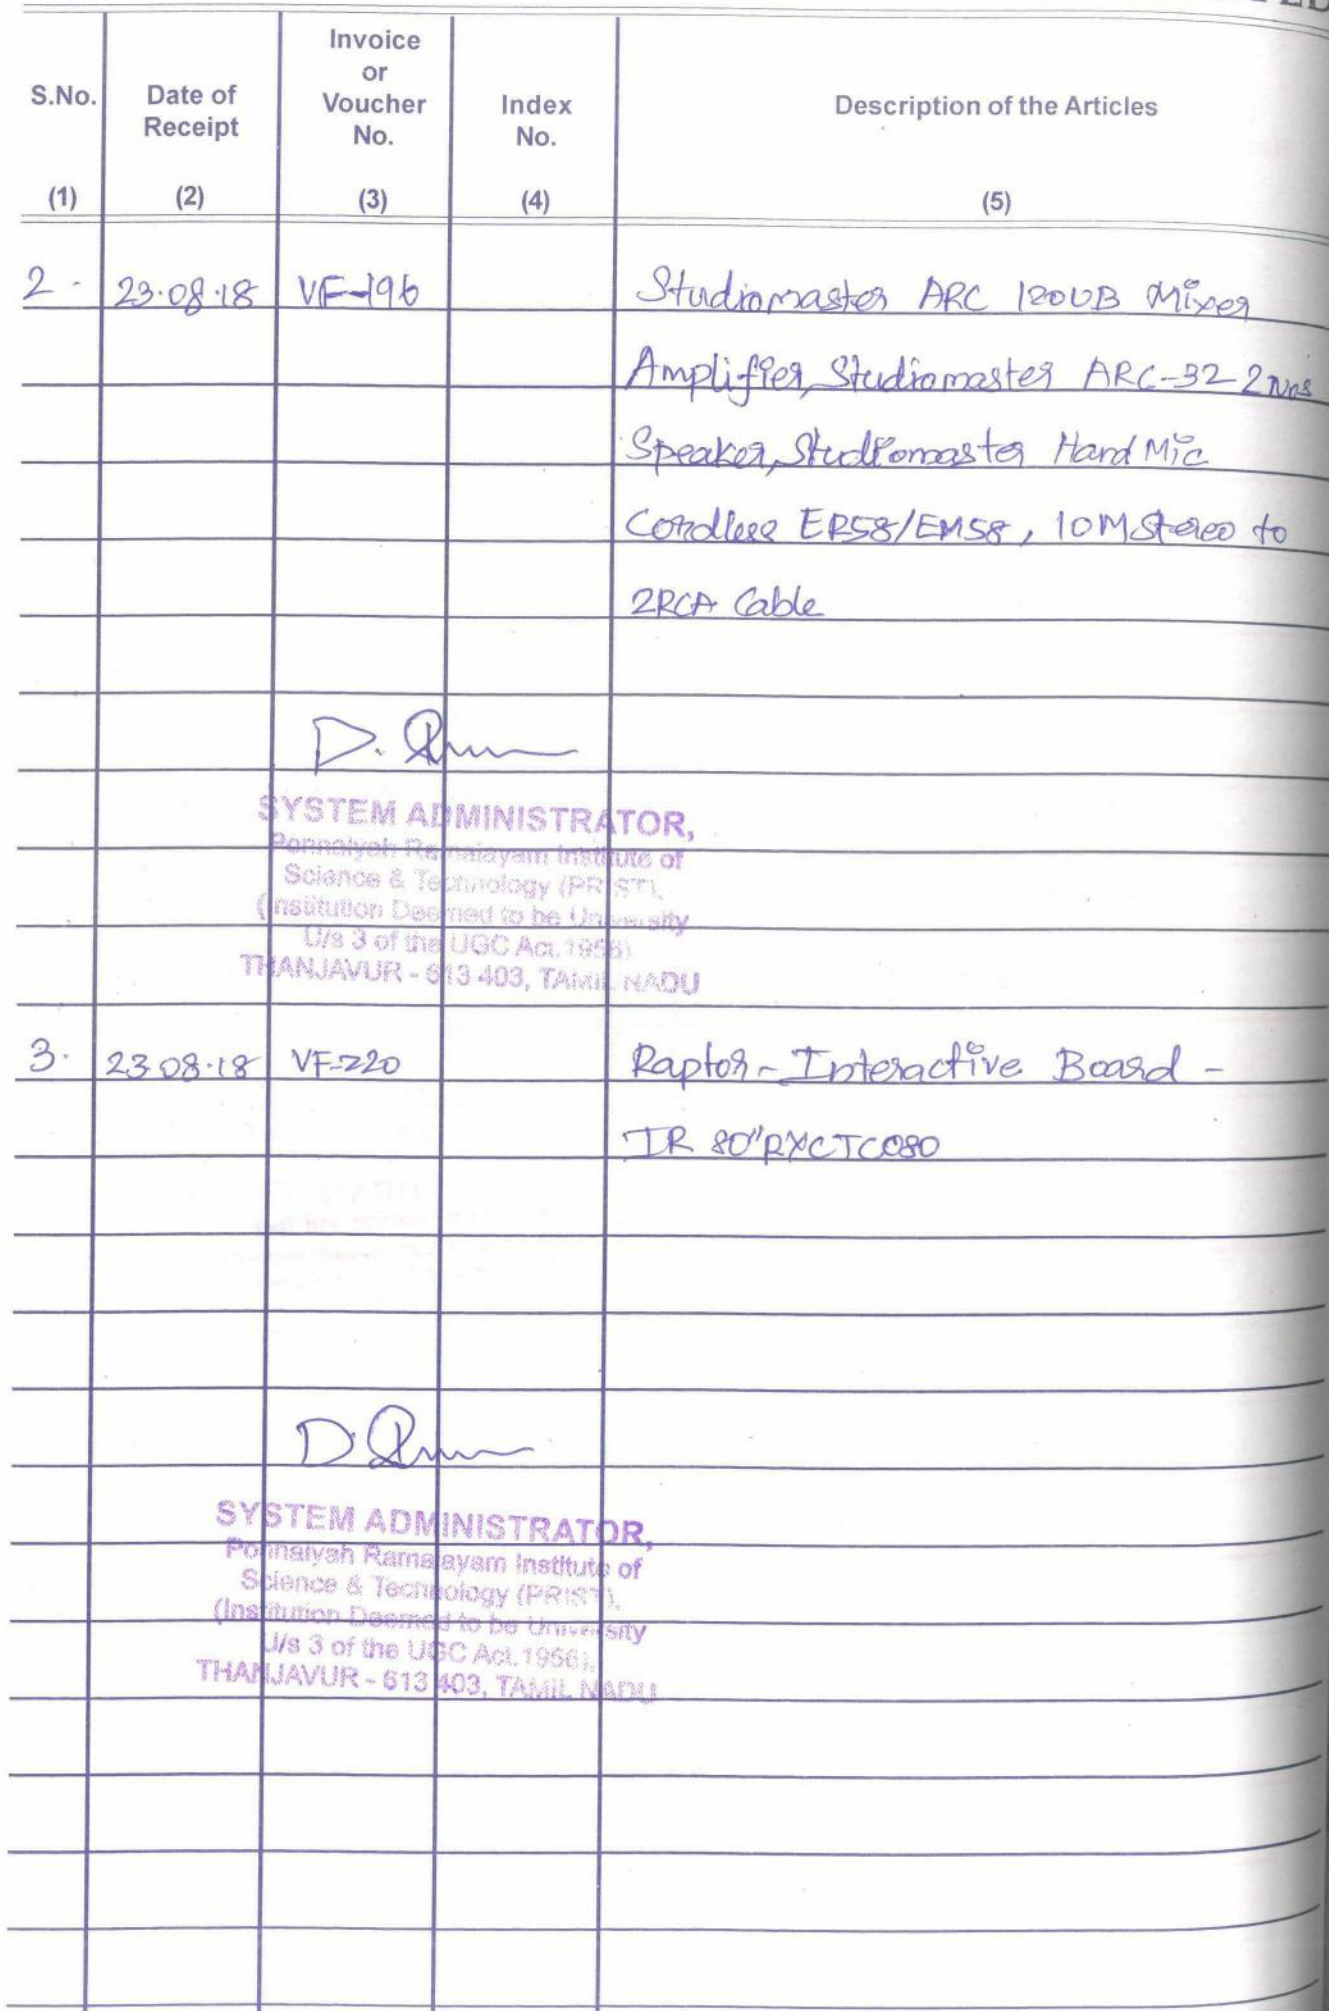 S.No.
Date of
Receipt
Invoice
or
Voucher
No.
Index
No.
Description of the Articles
(1) (2) (3) (4) (5)
2. 23.08.18 VF-196 Studiomaster ARC 120UB Mixer
Amplifier, Studiomaster ARC-32-2Nos
Speaker, Studiomaster Hand Mic
Cordless ER58/EM58, 10M Stereo to
2RCA Cable
D.
SYSTEM ADMINISTRATOR,
Ponnaiyah Ramajayam Institute of
Science & Technology (PRIST),
(Institution Deemed to be University
U/s 3 of the UGC Act.1956)
THANJAVUR - 613 403, TAMIL NADU
3. 23.08.18 VF-220 Raptor-Interactive Board -
IR 80"RXCTC080
D.
SYSTEM ADMINISTRATOR,
Ponnaiyah Ramajayam Institute of
Science & Technology (PRIST),
(Institution Deemed to be University
U/s 3 of the UGC Act.1956),
THANJAVUR - 613 403, TAMIL NADU